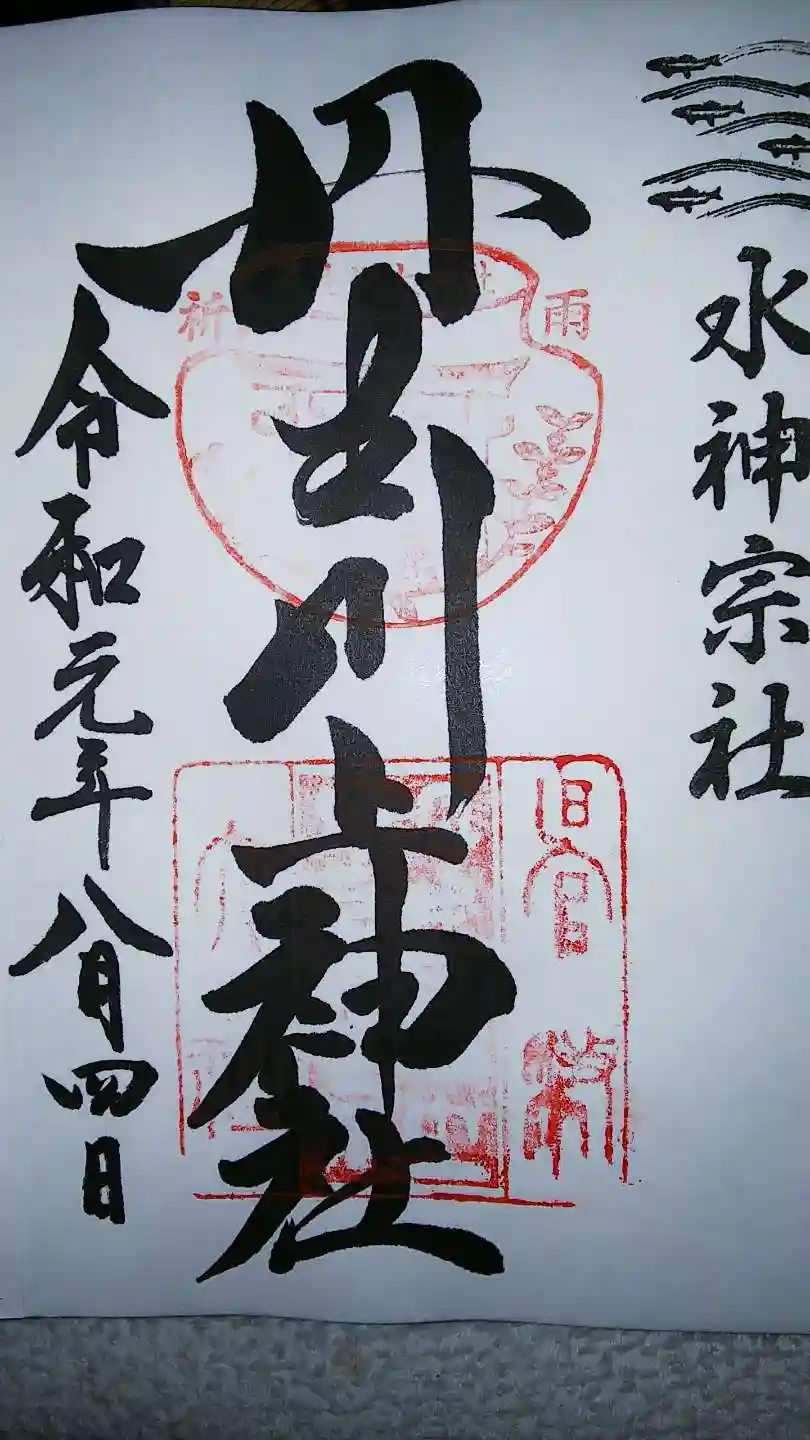 水神宗社
丹生川上神社
令和元年八月四日
祈雨